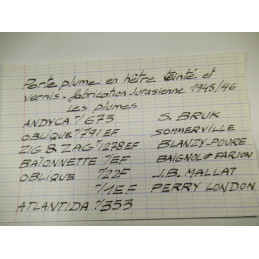 Porte plume en hêtre teinté et
vernis - fabrication Jurasienne 1945/46
Les plumes
ANDYCA 1/673 S. BRUK
OBLIQUE 1/791 EF SOMMERVILLE
ZIG & ZAG 1/278 EF BLANZY-POURE
BAÏONNETTE 1/EF BAIGNOL & FARJON
OBLIQUE 1/22F J.B. MALLAT
1/1EF PERRY LONDON
ATLANTIDA 1/353